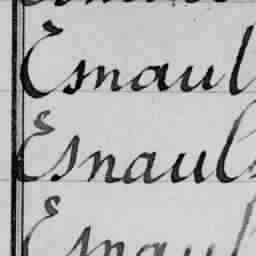 Esnaul
Esnaul
Esnaul